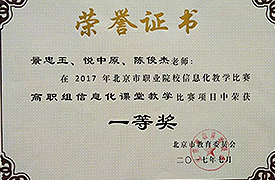 荣誉证书
景忠玉、悦中原、陈俊杰老师：
在2017年北京市职业院校信息化教学比赛
高职组信息化课堂教学比赛项目中荣获
一等奖
北京市教育委员会
二〇一七年七月